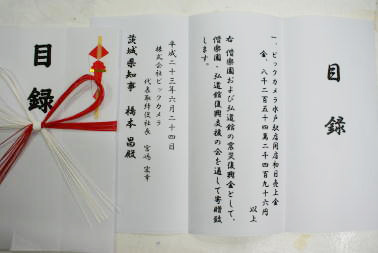 目録
一、ビックカメラ水戸駅店開店初日売上金
金、八千二百五十四万二千四百九十六円
以上
右 偕楽園および弘道館の震災復興金として、
偕楽園・弘道館復興支援の会を通して寄贈致
します。
平成二十三年六月二十四日
株式会社ビックカメラ
代表取締役社長 宮嶋 宏幸
茨城県知事 橋本 昌殿
目録